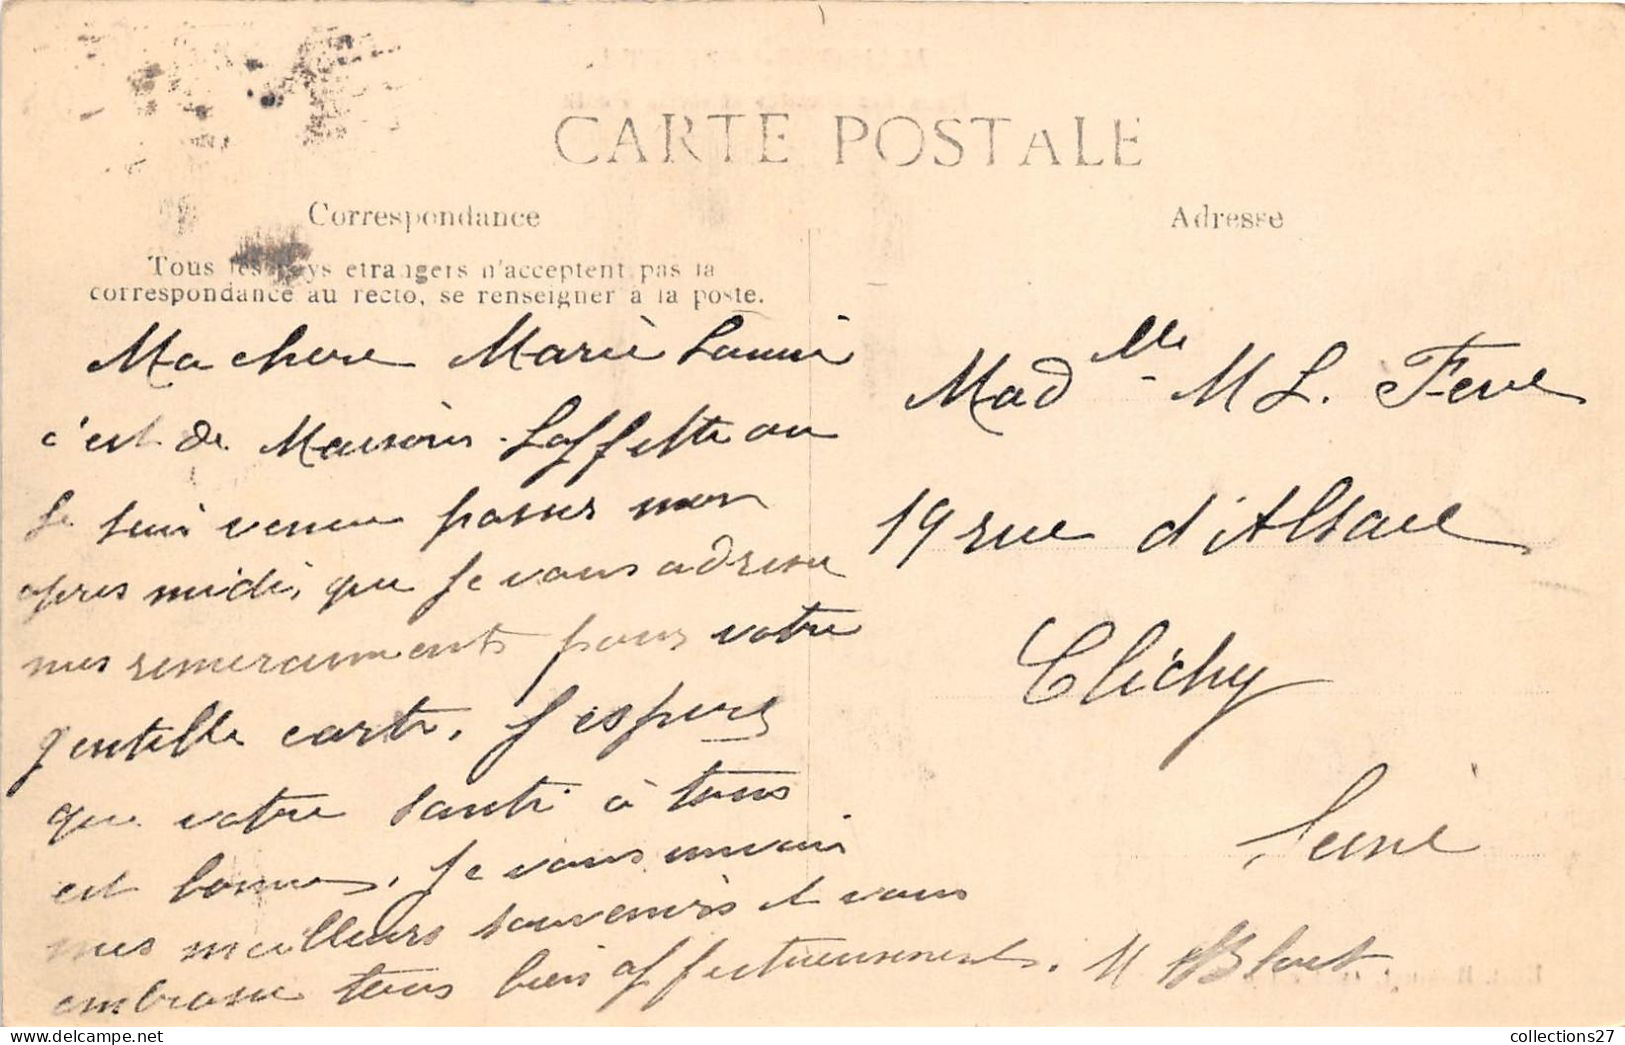 CARTE POSTALE
Correspondance
Adresse
Tous les pays etrangers n'acceptent pas la
correspondance au recto, se renseigner à la poste.
Ma chere Marie Louise
c'est de Maisons-Laffitte ou
Je suis venue passer mon
apres midi, que je vous adresse
mes remerciements pour votre
gentille carte. J'espere
que votre santé à tous
est bonnes. Je vous envoie
mes meilleurs souvenirs et vous
embrasse tous bien affectueusement.
Mad lle M L. Feve
19 rue d'Alsace
Clichy
Seine
collections27